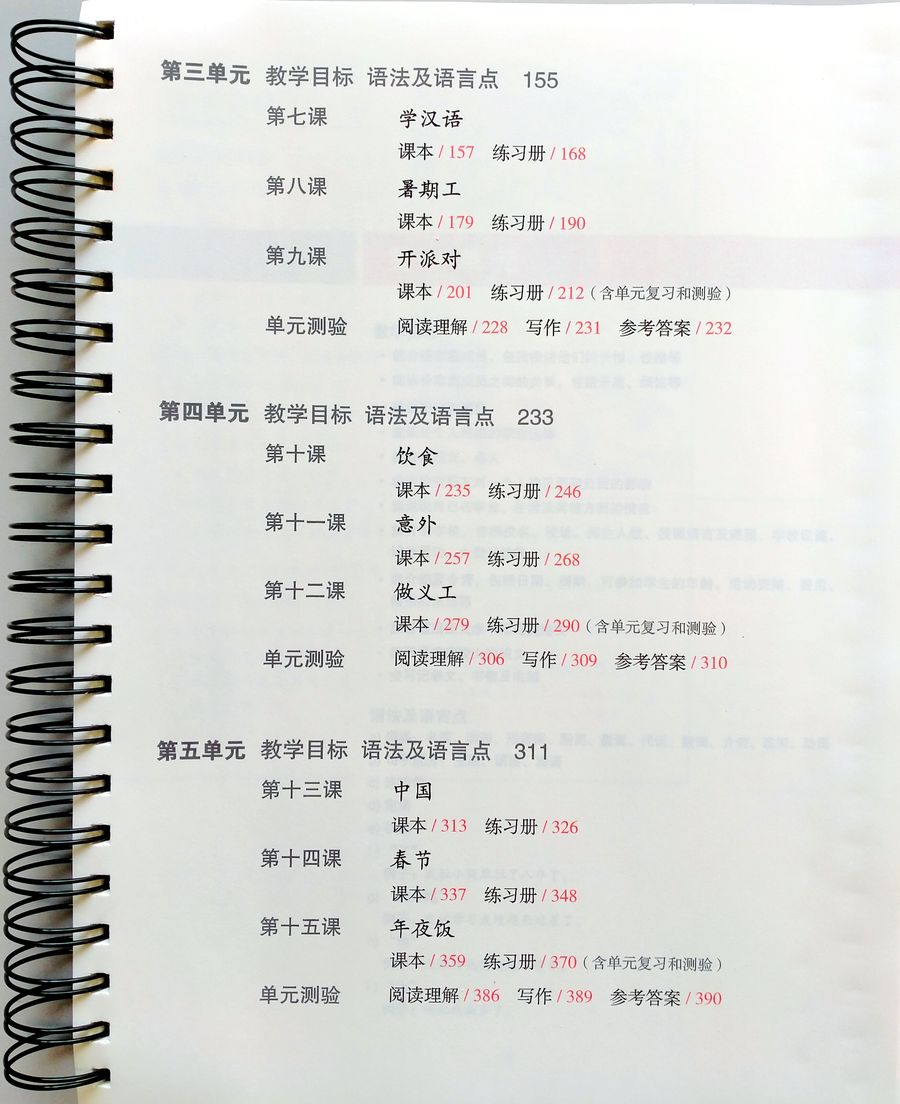 第三单元 教学目标 语法及语言点 155
第七课 学汉语
课本 / 157 练习册 / 168
第八课 暑期工
课本 / 179 练习册 / 190
第九课 开派对
课本 / 201 练习册 / 212（含单元复习和测验）
单元测验 阅读理解 / 228 写作 / 231 参考答案 / 232
第四单元 教学目标 语法及语言点 233
第十课 饮食
课本 / 235 练习册 / 246
第十一课 意外
课本 / 257 练习册 / 268
第十二课 做义工
课本 / 279 练习册 / 290（含单元复习和测验）
单元测验 阅读理解 / 306 写作 / 309 参考答案 / 310
第五单元 教学目标 语法及语言点 311
第十三课 中国
课本 / 313 练习册 / 326
第十四课 春节
课本 / 337 练习册 / 348
第十五课 年夜饭
课本 / 359 练习册 / 370（含单元复习和测验）
单元测验 阅读理解 / 386 写作 / 389 参考答案 / 390